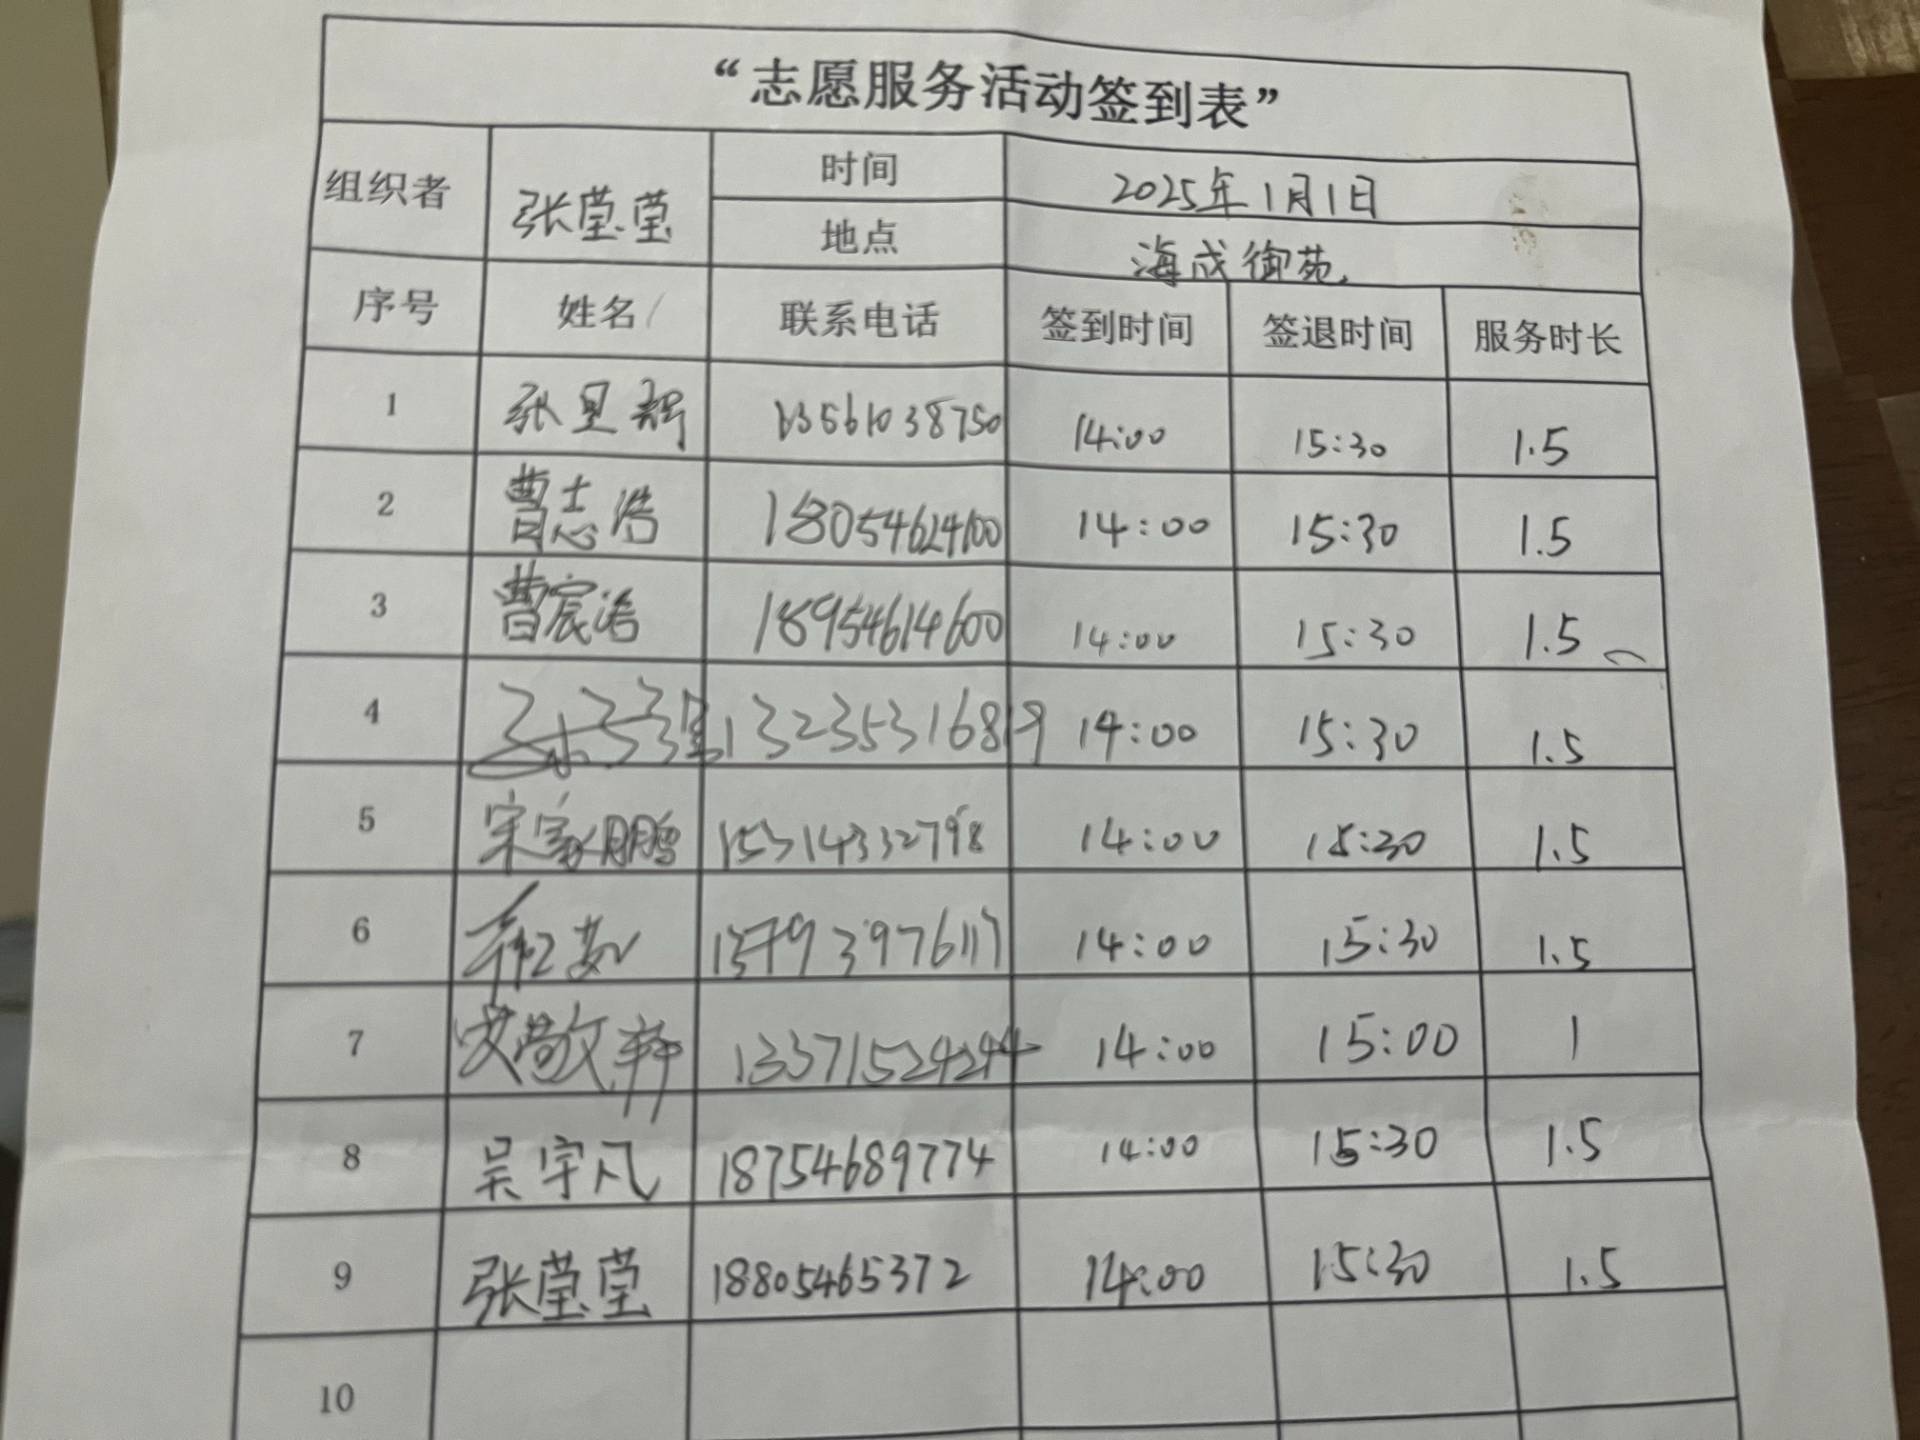 “志愿服务活动签到表”
组织者 张莹莹 时间 2025年1月1日
地点 海成御苑
序号 姓名 联系电话 签到时间 签退时间 服务时长
1 张昱 13561038750 14:00 15:30 1.5
2 曹志浩 18054624600 14:00 15:30 1.5
3 曹宸浩 18954614600 14:00 15:30 1.5
4 13235316819 14:00 15:30 1.5
5 宋家鹏 15314332798 14:00 15:30 1.5
6 14:00 15:30 1.5
7 敬轩 13371524244 14:00 15:00 1
8 吴宇凡 18754689774 14:00 15:30 1.5
9 张莹莹 18805465372 14:00 15:30 1.5
10